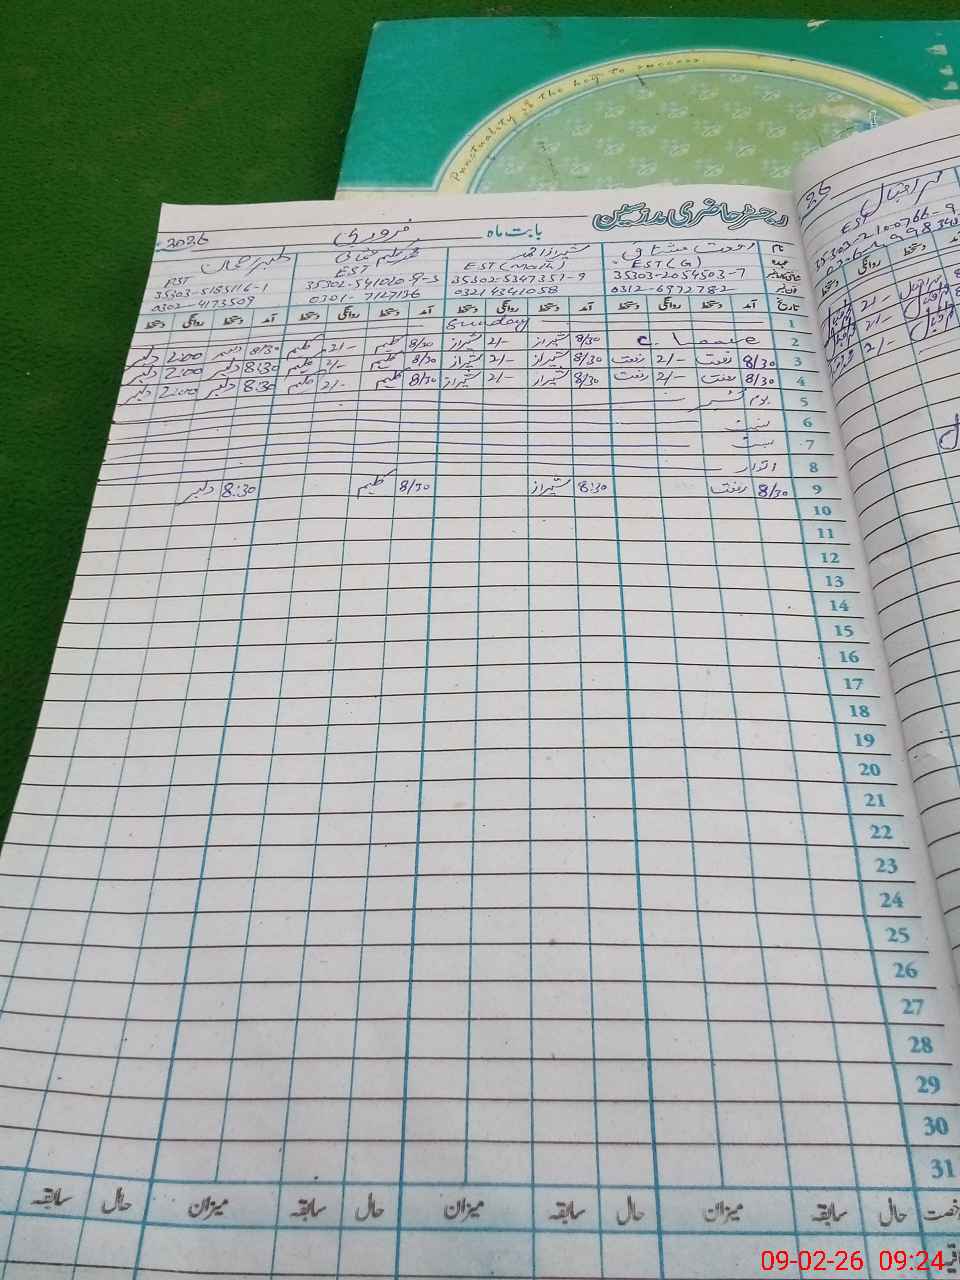 Punctuality is the key to success.
رجسٹر حاضری مدرسین
بابت ماہ فروری 2026
نام رفعت مشتاق شیراز احمد
عہدہ EST (G) EST (Math) EST PST
35303-2054503-7 35302-5347357-9 35302-541020-9-3 35303-5185116-1
0312-6972782 03214341058 0301-7127136 0302-4173509
تاریخ آمد دستخط روانگی دستخط آمد دستخط روانگی دستخط آمد دستخط روانگی دستخط آمد دستخط روانگی دستخط
1 Sunday
2 C. Leave 8/30 شیراز 2/- شیراز 8/30 عظیم 2/- عظیم 8/30 دلبر 2:00 دلبر
3 8/30 رفعت 2/- رفعت 8/30 شیراز 2/- شیراز 8/30 عظیم 2/- عظیم 8:30 دلبر 2:00 دلبر
4 8/30 رفعت 2/- رفعت 8/30 شیراز 2/- شیراز 8/30 عظیم 2/- عظیم 8:30 دلبر 2:00 دلبر
5 یوم کشمیر
6
7
8 اتوار
9 8/30 رفعت 8:30 شیراز 8/30 عظیم 8:30 دلبر
10
11
12
13
14
15
16
17
18
19
20
21
22
23
24
25
26
27
28
29
30
31
رخصت حال سابقہ میزان حال سابقہ میزان حال سابقہ میزان حال سابقہ
09-02-26 09:24